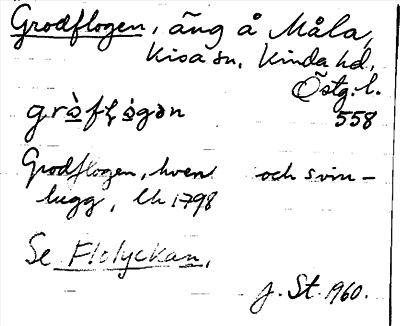 Grodflogen, äng å Måla,
Kisa sn, Kinda hd,
Östg. l.
558
Grodflogen, hven och svin-
lugg, Lh 1798
Se Flolyckan.
J. St. 1960.